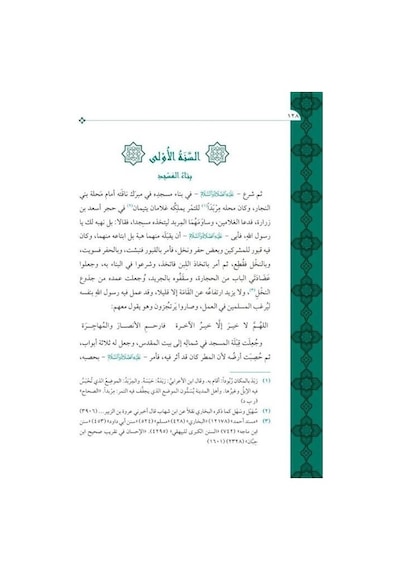 ١٢٨
السَّنَةُ الأُوْلَى
بِنَاءُ المَسْجِدِ
ثم شرع - عَلَيْهِ الصَّلَاةُ وَالسَّلَامُ - في بناء مسجده في مبرك ناقته أمام محلة بني
النجار، وكان محله مِرْبَدًا(١) للتمر يملكه غلامان يتيمان(٢) في حجر أسعد بن
زرارة، فدعا الغلامين، وساوَمَهُمَا المِربد ليتخذه مسجدا، فقالا: بل نهبه لك يا
رسول الله، فأبى - عَلَيْهِ الصَّلَاةُ وَالسَّلَامُ - أن يقبله منهما هبة بل ابتاعه منهما، وكان
فيه قبور للمشركين وبعض حفر ونخل، فأمر بالقبور فنبشت، وبالحفر فسويت،
وبالنخل فقُطِع، ثم أمر باتخاذ اللبِن فاتخذ، وشرعوا في البناء به، وجعلوا
عضادَتَي الباب من الحجارة، وسقَّفُوه بالجريد، وجعلت عمده من جذوع
النخل(٣)، ولا يزيد ارتفاعه عن القامة إلا قليلا، وقد عمل فيه رسول الله بنفسه
ليُرغِب المسلمين في العمل، وصاروا يرتجزون وهو يقول معهم:
اللهُمَّ لا خيرَ إلَّا خيرُ الآخرة فارحم الأنصارَ والمُهاجِرَة
وجُعلت قِبلة المسجد في شماله إلى بيت المقدس، وجعل له ثلاثة أبواب،
ثم حُصِبَت أرضُه لأن المطر كان قد أثر فيه، فأمر - عَلَيْهِ الصَّلَاةُ وَالسَّلَامُ - بحصبه،
(١) رَبَدَ بالمكان رُبُودًا: أقام به. وقال ابن الأعرابيّ: رَبَدَهُ: حَبَسَهُ. والمِرْبَدُ: الموضعُ الذي تُحْبَسُ
فيه الإبلُ وغيرها. وأهل المدينة يُسَمُّونَ الموضع الذي يجفَّف فيه التمر: مِرْبدًا. «الصحاح»
(ر ب د)
(٢) سُهَيْل وسَهْل كما ذكره البخاري نقلاً عن ابن شهاب قال أخبرني عروة بن الزبير... (٣٩٠٦)
(٣) «مسند أحمد» (١٢١٧٨) «البخاري» (٤٢٨) «مسلم» (٥٢٤) «سنن أبي داود» (٤٥٣) «سنن
ابن ماجه» (٧٤٢) «السنن الكبرى للبيهقي» (٤٢٩٥). «الإحسان في تقريب صحيح ابن
حِبَّان» (٢٣٢٨) (١٦٠١)